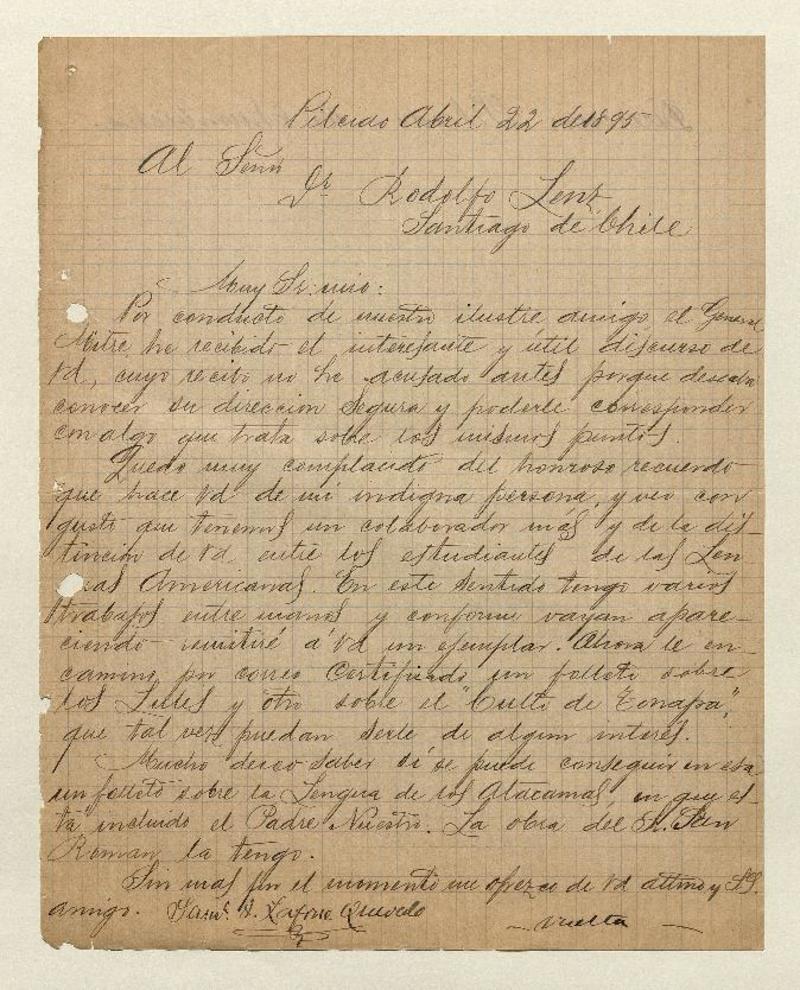 Pilciao Abril 22 de 1895
Al Señor
Dr Rodolfo Lenz
Santiago de Chile
Muy Sr. mio:
Por conducto de nuestro ilustre amigo el General
Mitre he recibido el interesante y útil discurso de
Vd, cuyo recibo no he acusado antes porque deseaba
conocer su direccion segura y poderle corresponder
con algo que trata sobre los mismos puntos.
Quedo muy complacido del honroso recuerdo
que hace Vd de mi indigna persona, y veo con
gusto que tenemos un colaborador más y de la dis-
tincion de Vd entre los estudiantes de las Len
uas Americanas. En este sentido tengo varios
trabajos entre manos y conforme vayan apare-
ciendo remitiré á Vd un ejemplar. Ahora le en-
camino por correo Certificado un folleto sobre
los Lules y otro sobre el "Culto de Tonapa",
que tal vez puedan serle de algun interés.
Mucho deseo saber si se puede conseguir en esa
un folleto sobre la Lengua de los Atacamas, en que es-
tá incluido el Padre Nuestro. La obra del Sr. San
Roman la tengo.
Sin mas por el momento me ofrezco de Vd attmo y S.S.
amigo. Saml. A. Lafone Quevedo
vuelta